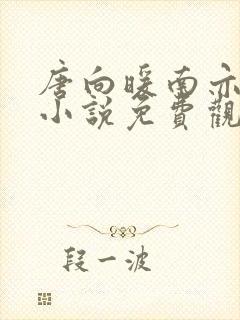 唐向暖南亦
小說免費觀
段一波